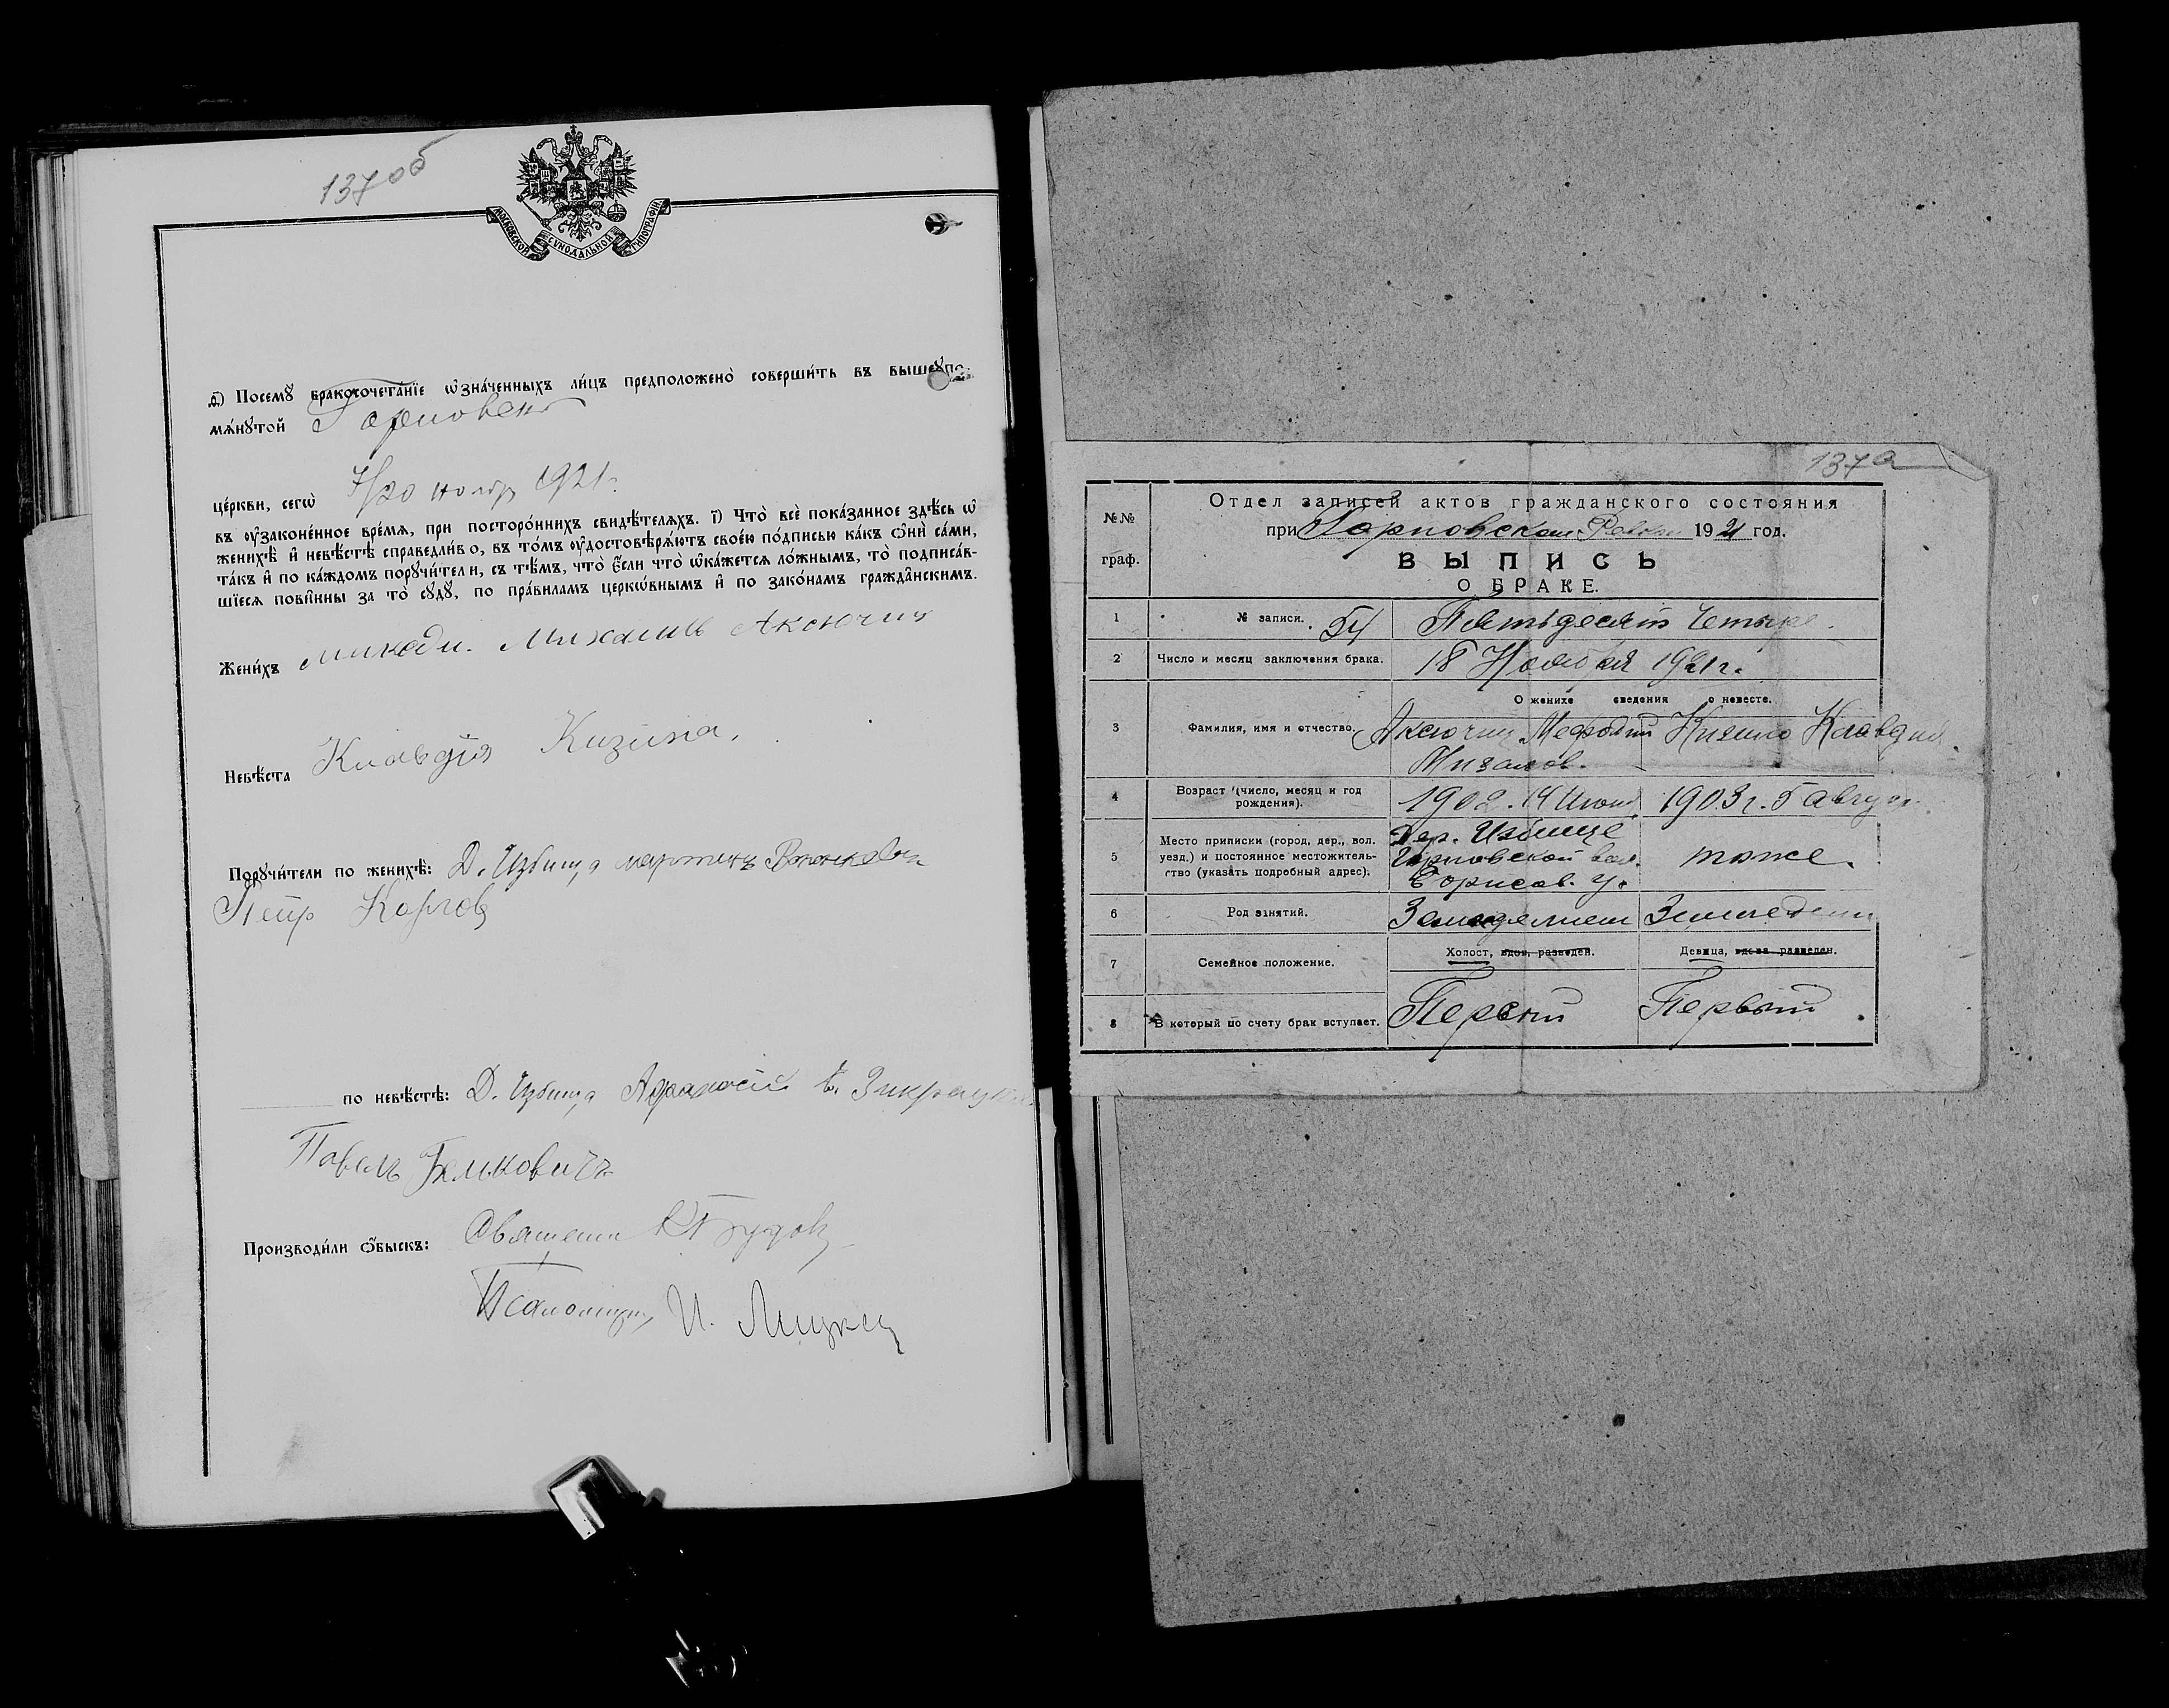 137об
МОСКОВСКОЙ СѴНОДАЛЬНОЙ ТИПОГРАФІИ
д҃) Посемꙋ̀ бракосочета́нїе ѡ҆зна́ченныхъ ли́цъ предположено̀ соверши́ть въ вышеꙋпо-
мѧ́нꙋтой
це́ркви, сегѡ̀ 7/20 ноябр 1921 г.
въ ᲂу҆законе́нное вре́мѧ, при посторо́ннихъ свидѣ́телѧхъ. і҃) Что̀ всѐ пока́занное здѣ́сь ѡ҆
женихѣ̀ и҆ невѣ́стѣ справедли́во, въ то́мъ ᲂу҆достовѣрѧ́ютъ свое́ю по́дписью ка́къ ѻ҆нѝ са́ми,
та́къ и҆ по ка́ждомъ порꙋчи́тели, съ тѣ́мъ, что̀ є҆́сли что̀ ѡ҆ка́жетсѧ ло́жнымъ, то̀ подписа́в-
шїесѧ пови́нны за то̀ сꙋдꙋ̀, по пра́виламъ церкѡ́внымъ и҆ по зако́намъ гражда̂нскимъ.
Жени́хъ Аксючиц
Невѣ́ста Клавдія Кизина.
Порꙋчи́тели по женихѣ̀: Д. Избища мартинъ
Петр Карлов
по невѣ́стѣ: Д. Избища Афанасій
Павелъ Геликовичъ
Производи́ли ѻ҆́быскъ: Священн К Будов
Псаломщик И. Лицкец
137а
№№ граф.
Отдел записей актов гражданского состояния
при 1921 год.
ВЫПИСЬ
О БРАКЕ.
1 № записи. 54 Пятьдесят четыре.
2 Число и месяц заключения брака. 18 Ноября 1921 г.
О женихе сведения о невесте.
3 Фамилия, имя и отчество. Аксючиц Мефодий Кизило Клавдия
4 Возраст (число, месяц и год рождения). 1902. 14 Июня 1903 г. 5 август
5 Место приписки (город, дер., вол. уезд.) и постоянное местожитель-ство (указать подробный адрес). Дер. Избище
вол.
Борисов. у. тоже.
6 Род занятий. Земледелием Земледелием
7 Семейное положение. Холост, вдов, разведен. Девица, вдова разведен.
8 В который по счету брак вступает. Первый Первый